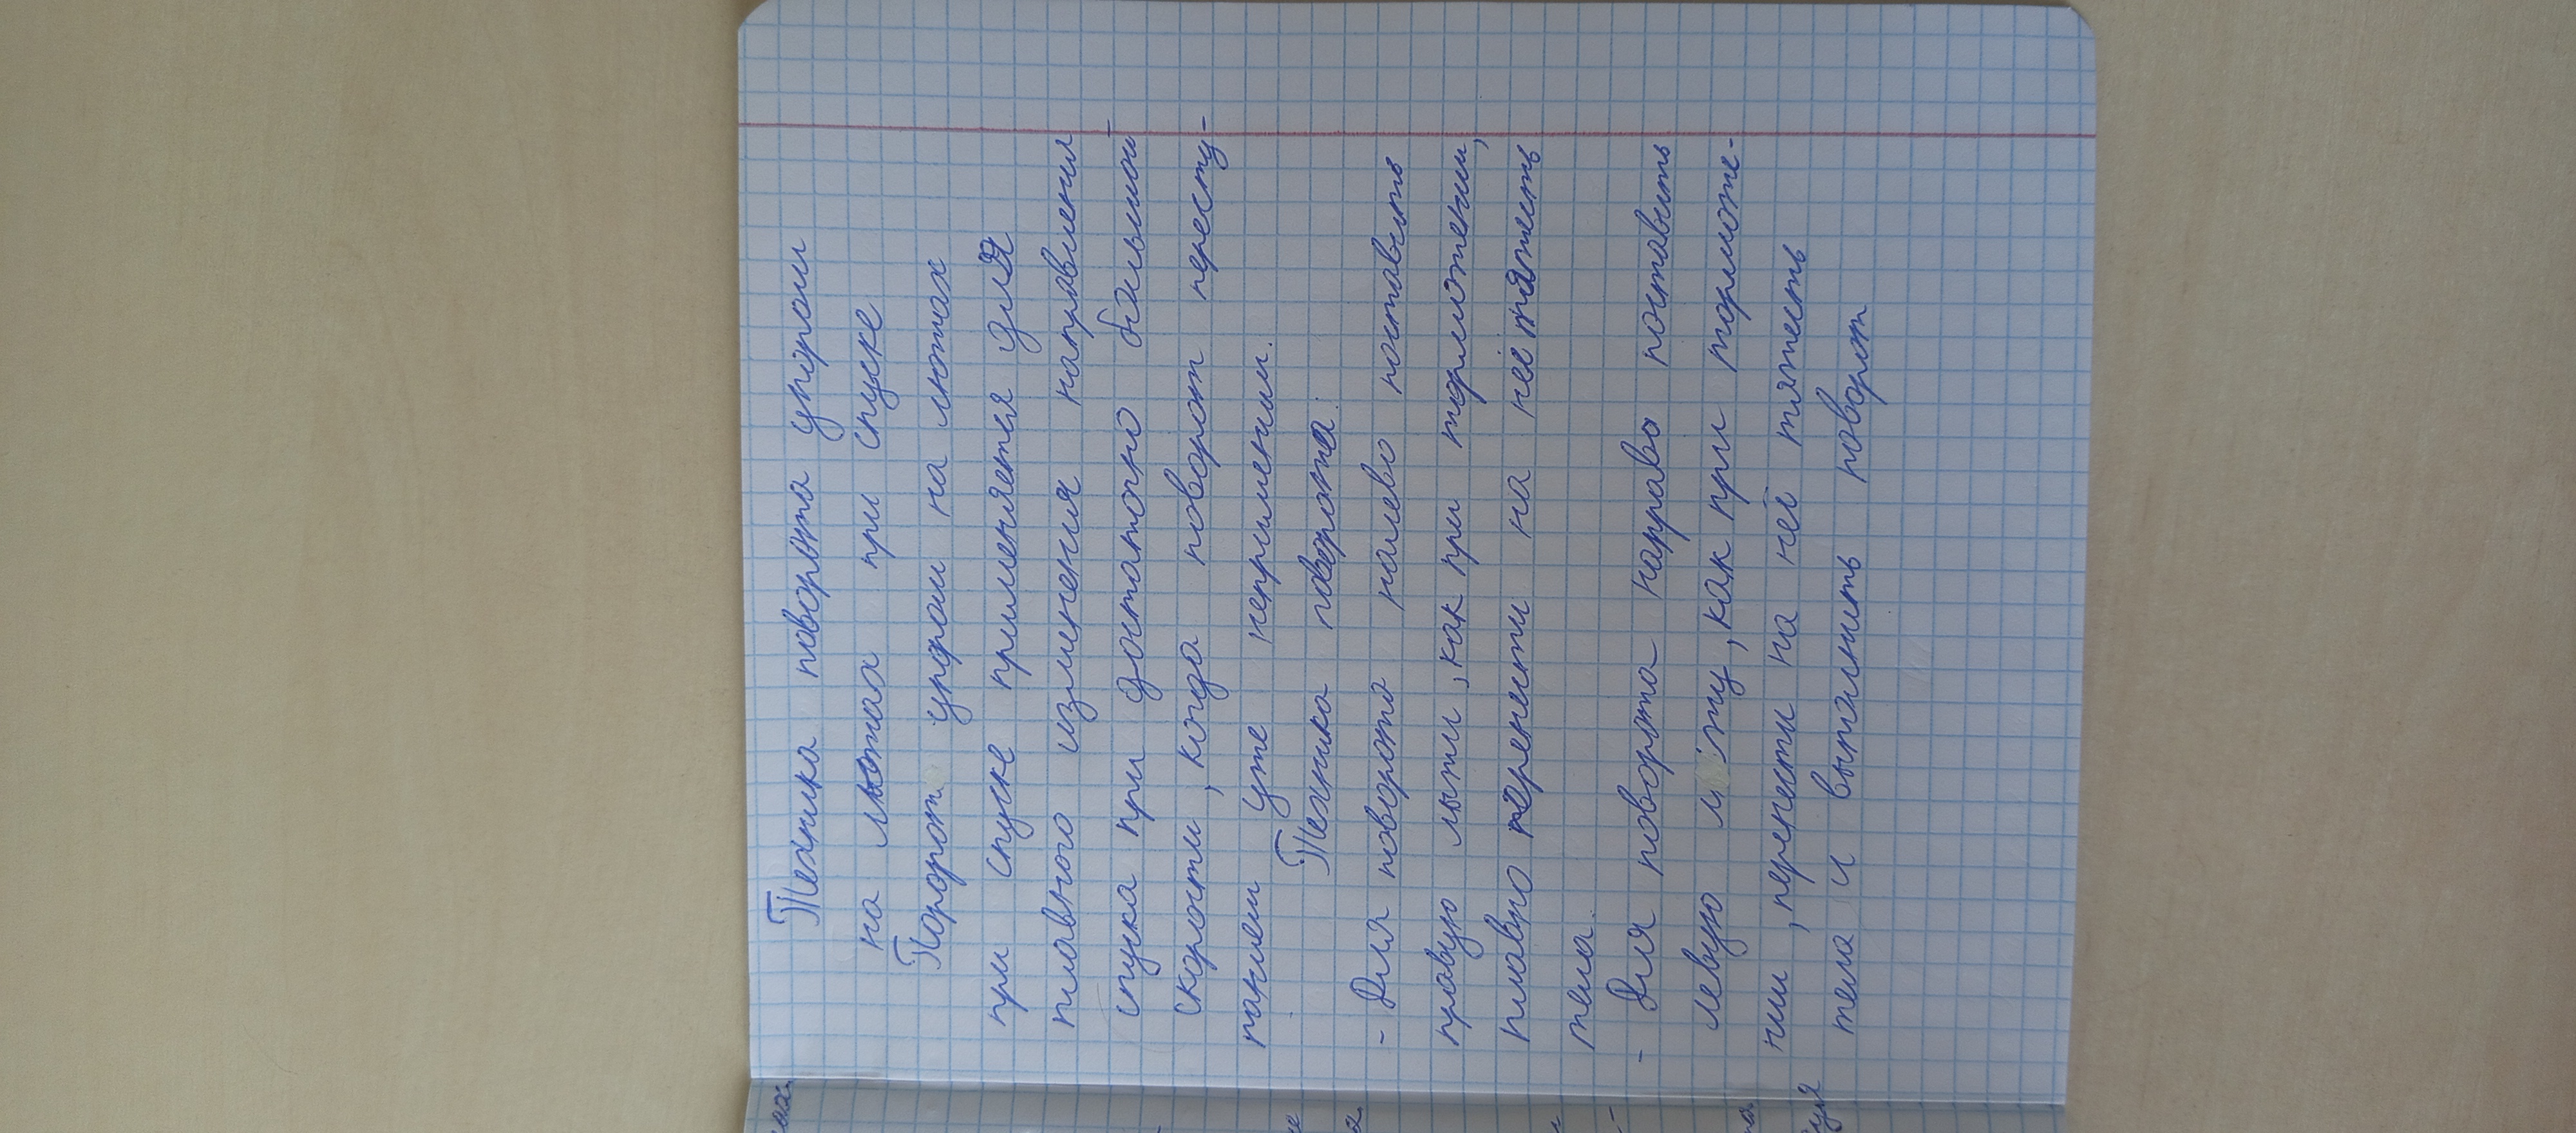 Техника поворота упором
на лыжах при спуске
Поророт упором на лыжах
при спуске применяется для
плавного изменения направления
спуска при достаточно большой
скорости, когда поворот пересту-
панием уже неприменим.
Техника поворота:
- Для поворота налево поставить
правую лыжи, как при торможении,
плавно перенести на неё тяжесть
тела.
- Для поворота направо поставить
левую л жу, как при торможе-
нии, перенести на неё тяжесть
тела и выполнить поворот